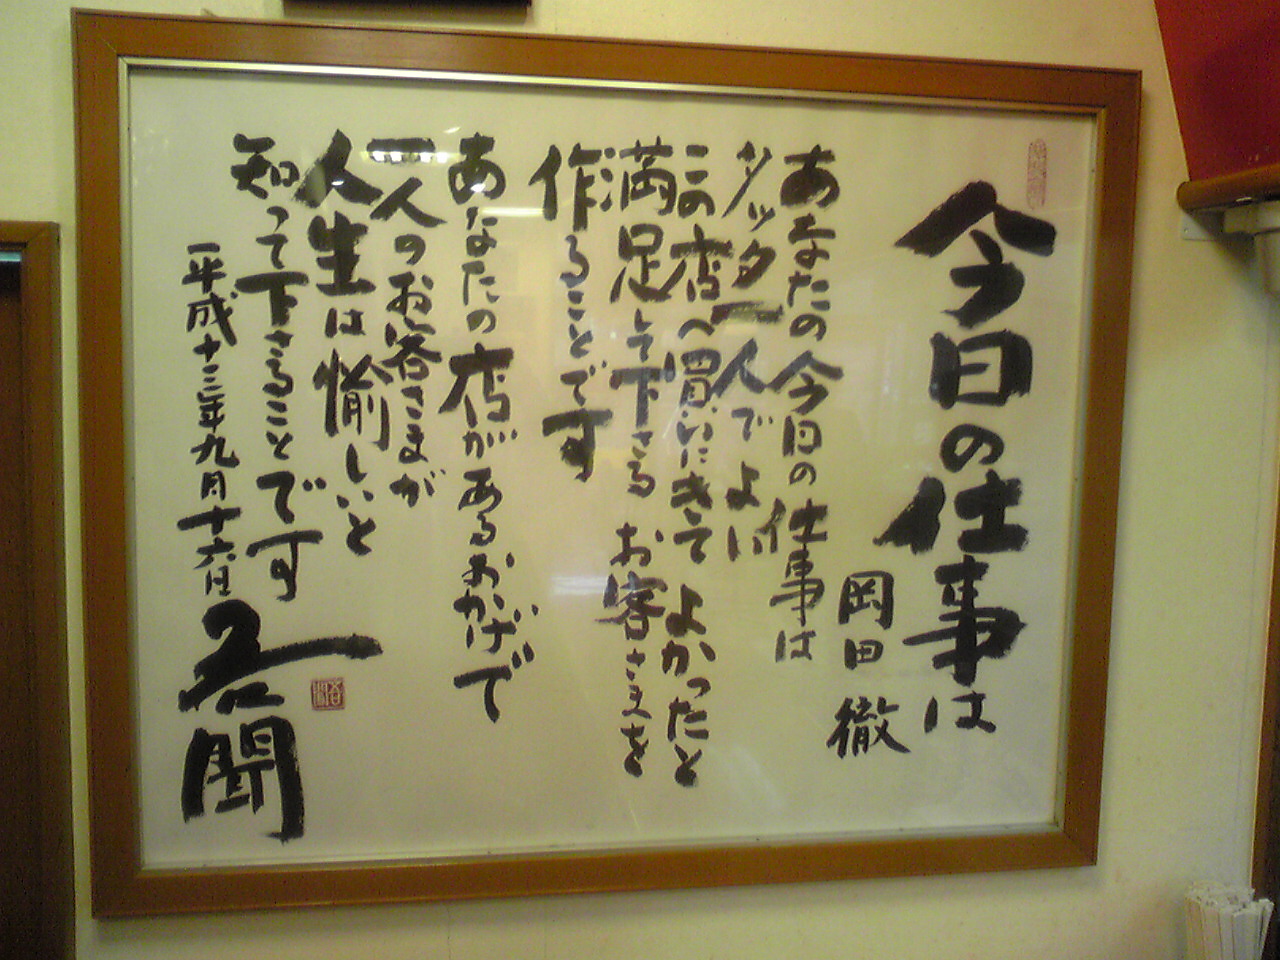 今日の仕事は
岡田徹
あなたの今日の仕事は
タッタ一人でよい
この店へ買いにきてよかったと
満足して下さるお客さまを
作ることです
あなたの店があるおかげで
一人のお客さまが
人生は愉しいと
知って下さることです
平成十三年九月十六日